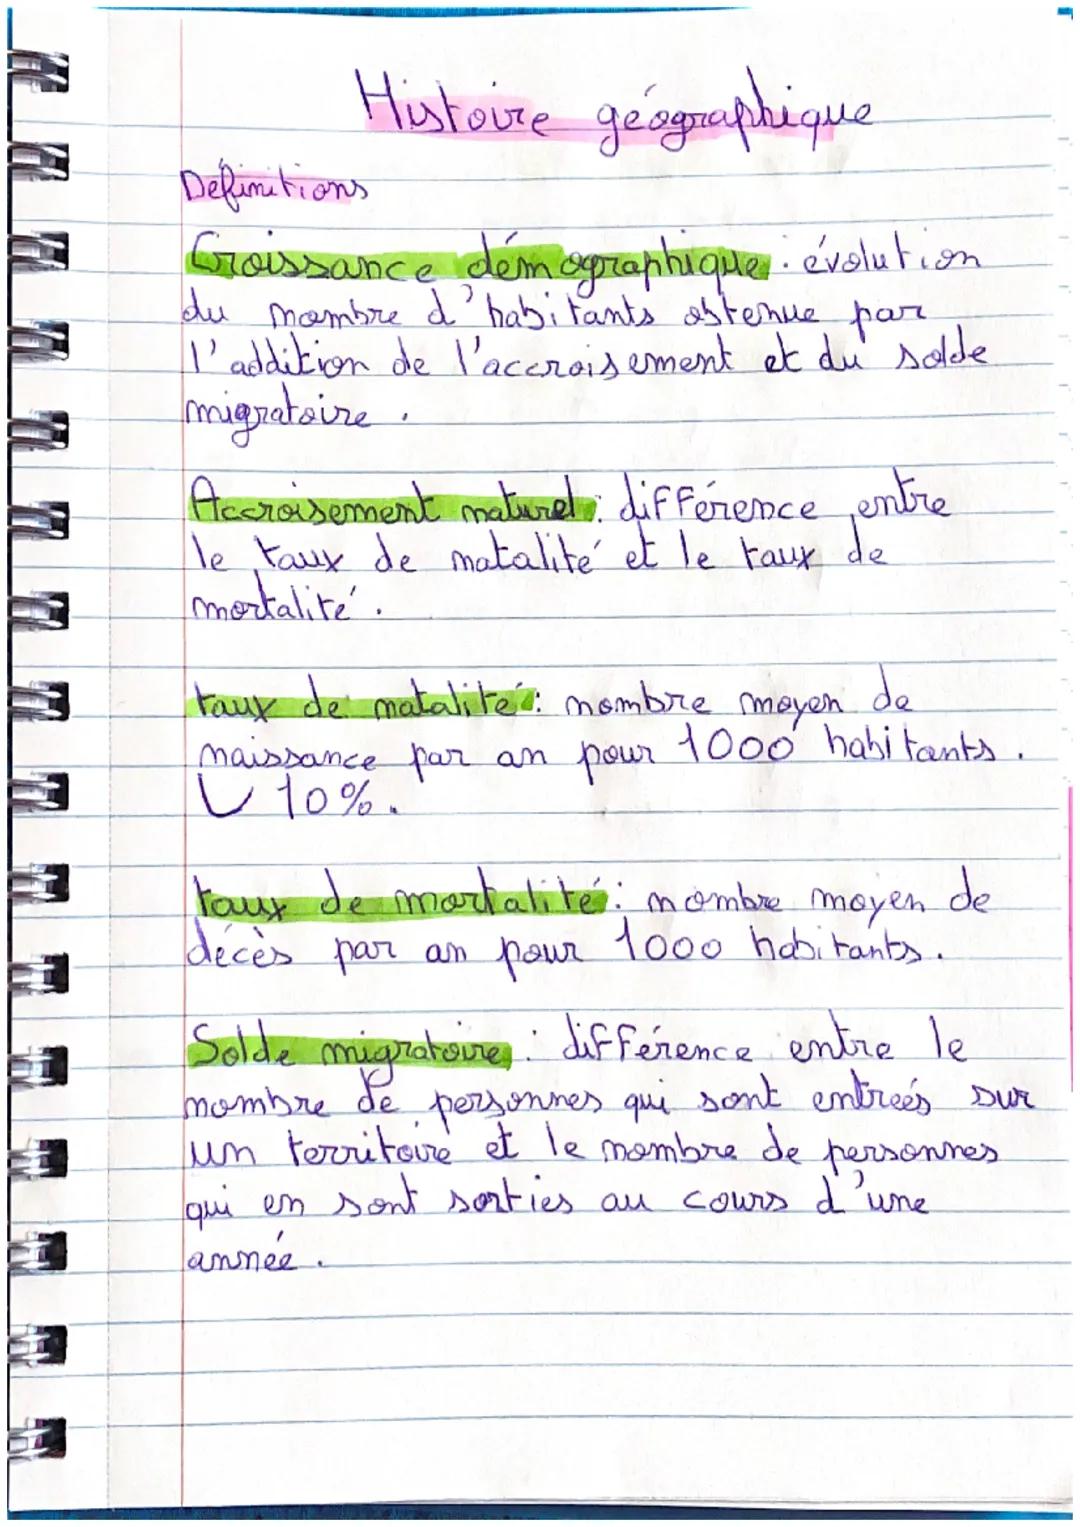 Histoire géographique
Définitions
Croissance démographique : évolution
du nombre d'habitants obtenue par
l'addition de l'accroisement et du solde
migratoire .
Accroisement naturel : différence entre
le taux de natalité et le taux de
mortalité .
taux de natalité : nombre moyen de
naissance par an pour 1000 habitants .
↳ 10% .
taux de mortalité : nombre moyen de
décès par an pour 1000 habitants .
Solde migratoire : différence entre le
nombre de personnes qui sont entreés sur
un territoire et le nombre de personnes
qui en sont sorties au cours d'une
année .